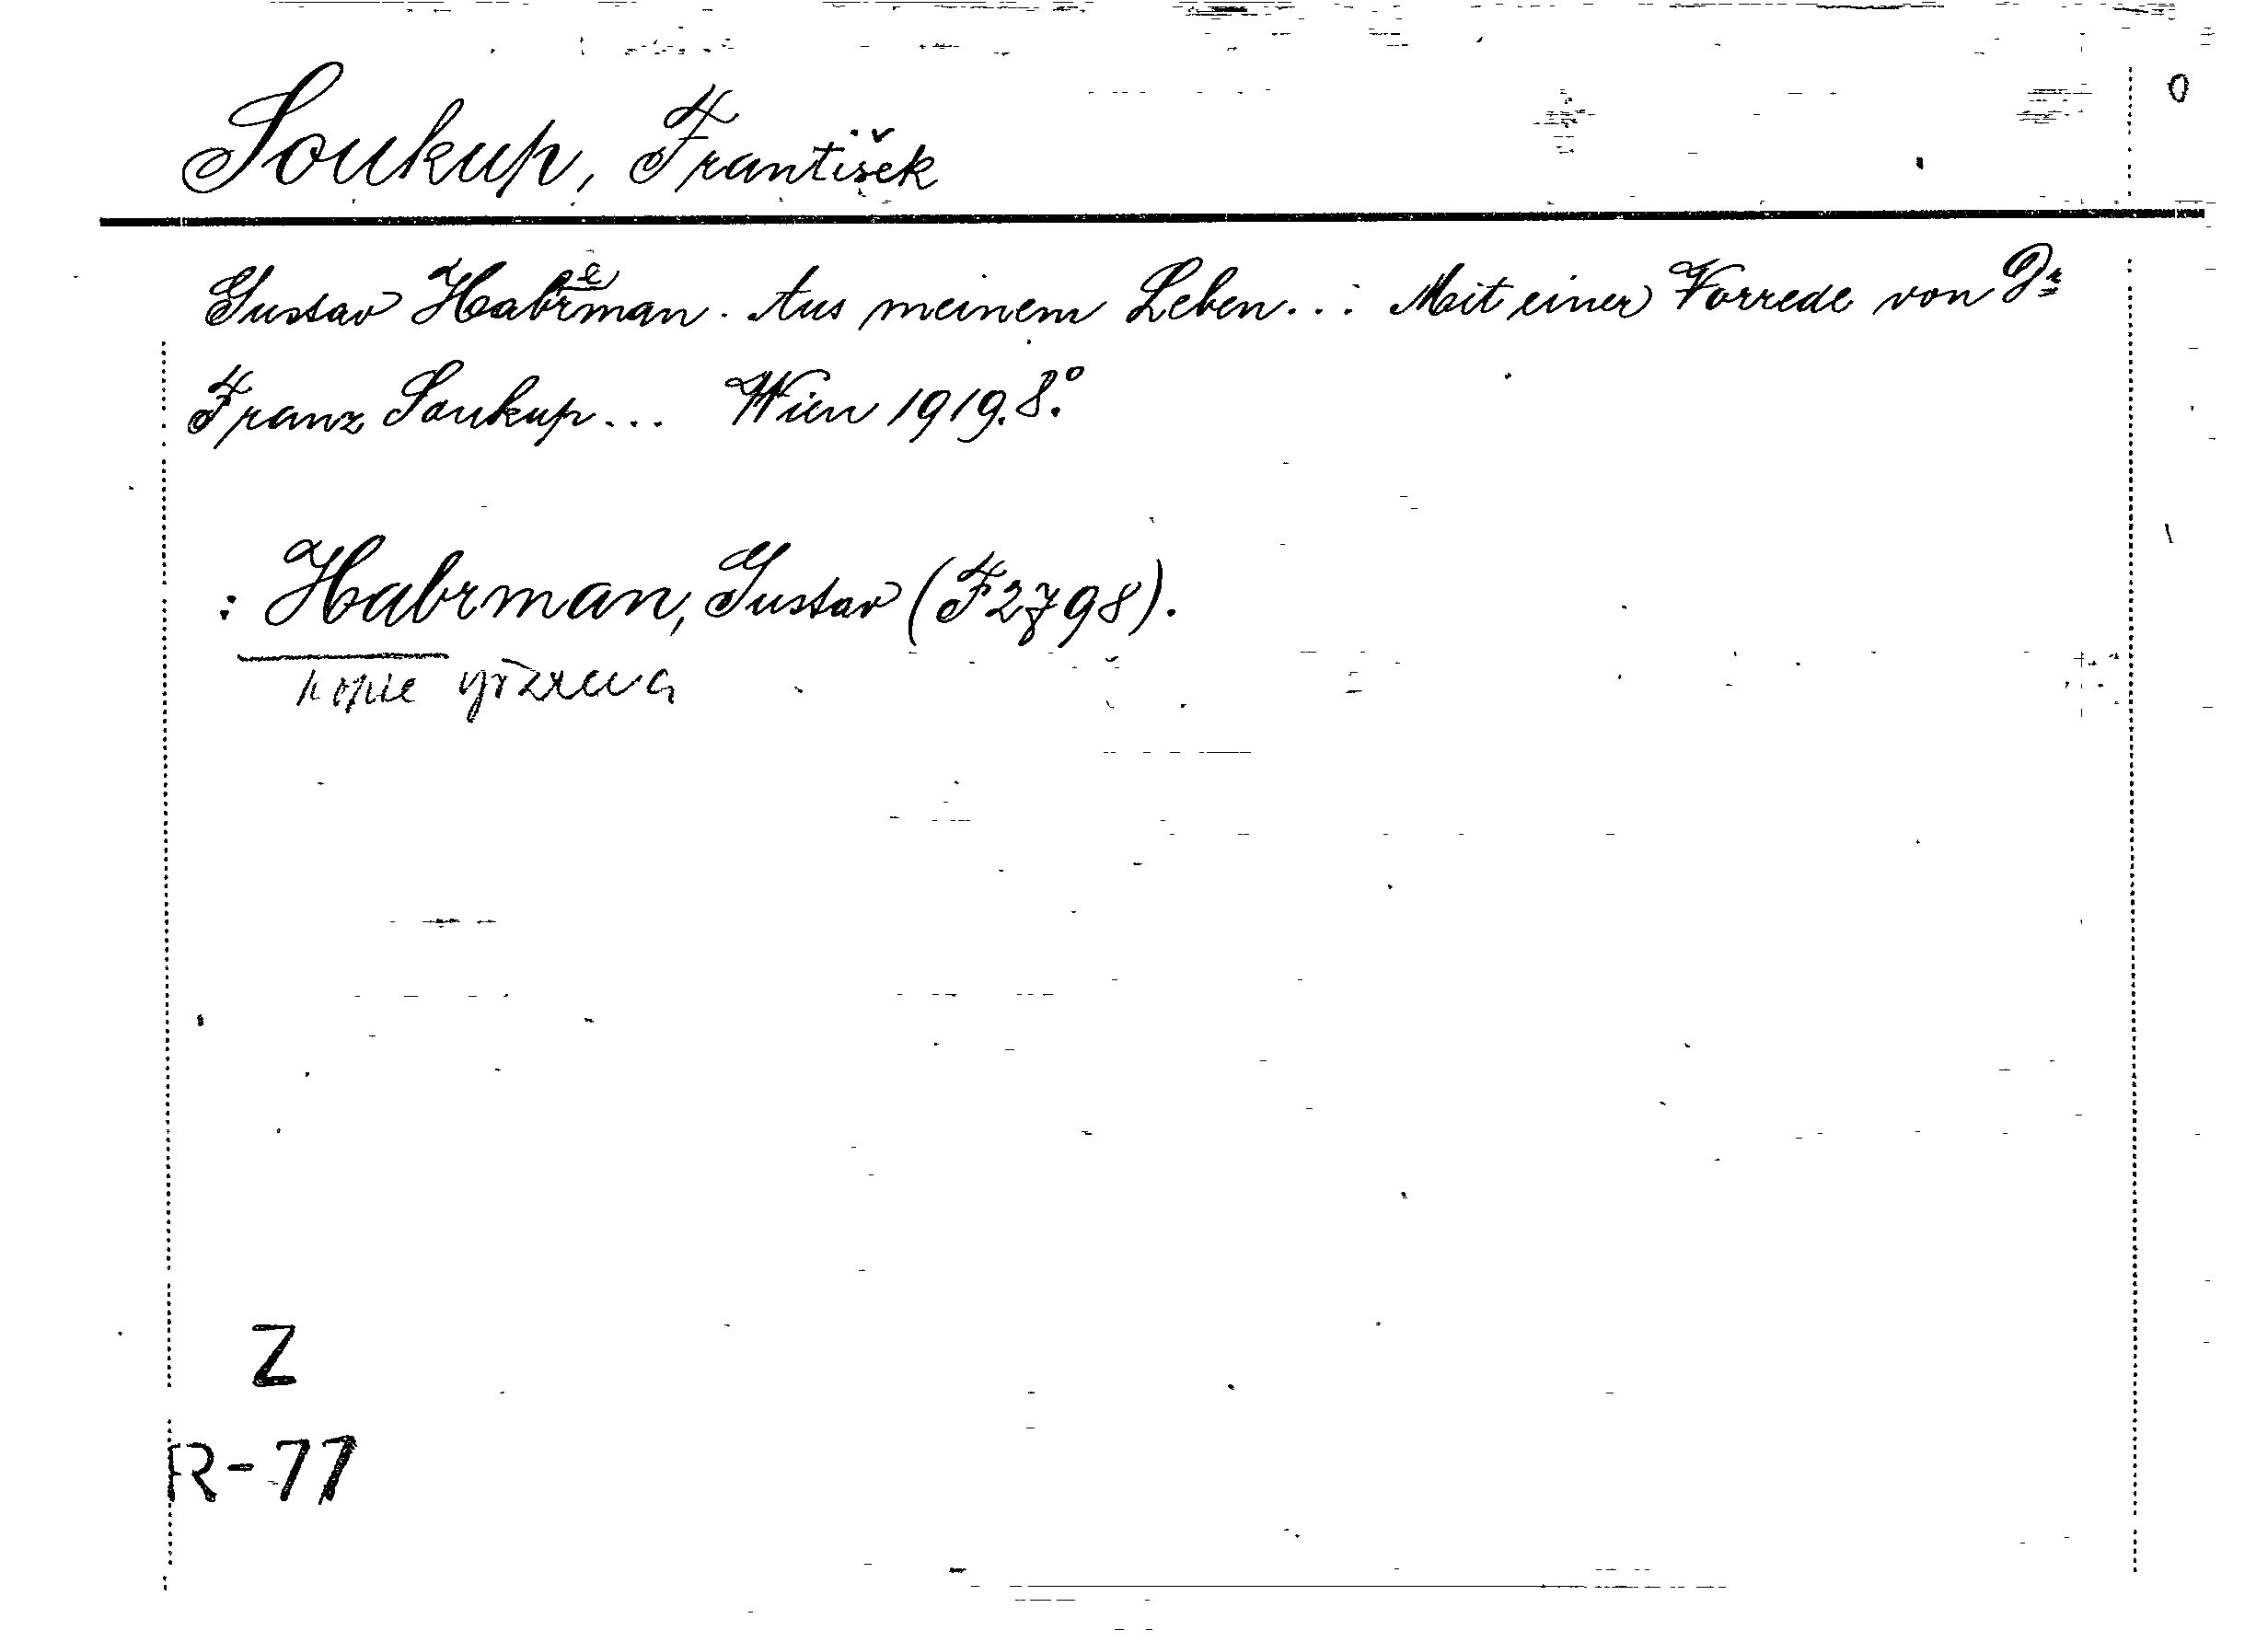 O
Soukup, František
Gustav Habrman. Aus meinem Leben... Mit einer Vorrede von Dr
Franz Soukup... Wien 1919. 8°.
: Habrman, Gustav (F 2798).
kopie
Z
R-77